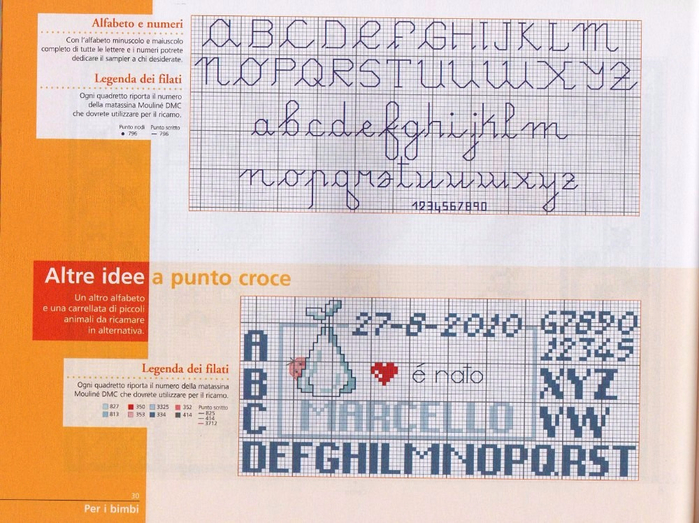 Alfabeto e numeri
Con l'alfabeto minuscolo e maiuscolo
completo di tutte le lettere e i numeri potrete
dedicare il sampler a chi desiderate.
Legenda dei filati
Ogni quadretto riporta il numero
della matassina Mouliné DMC
che dovrete utilizzare per il ricamo.
Punto nodi Punto scritto
796 796
A B C D E F G H I J K L M
N O P Q R S T U V W X Y Z
a b c d e f g h i j k l m
n o p q r s t u v w x y z
1234567890
Altre idee a punto croce
Un altro alfabeto
e una carrellata di piccoli
animali da ricamare
in alternativa.
Legenda dei filati
Ogni quadretto riporta il numero della matassina
Mouliné DMC che dovrete utilizzare per il ricamo.
827 350 3325 352 Punto scritto
813 353 334 414 825
414
3712
27-8-2010
67890
12345
A
B
C
é nato
MARCELLO
XYZ
VW
DEFGHILMNOPQRST
30
Per i bimbi